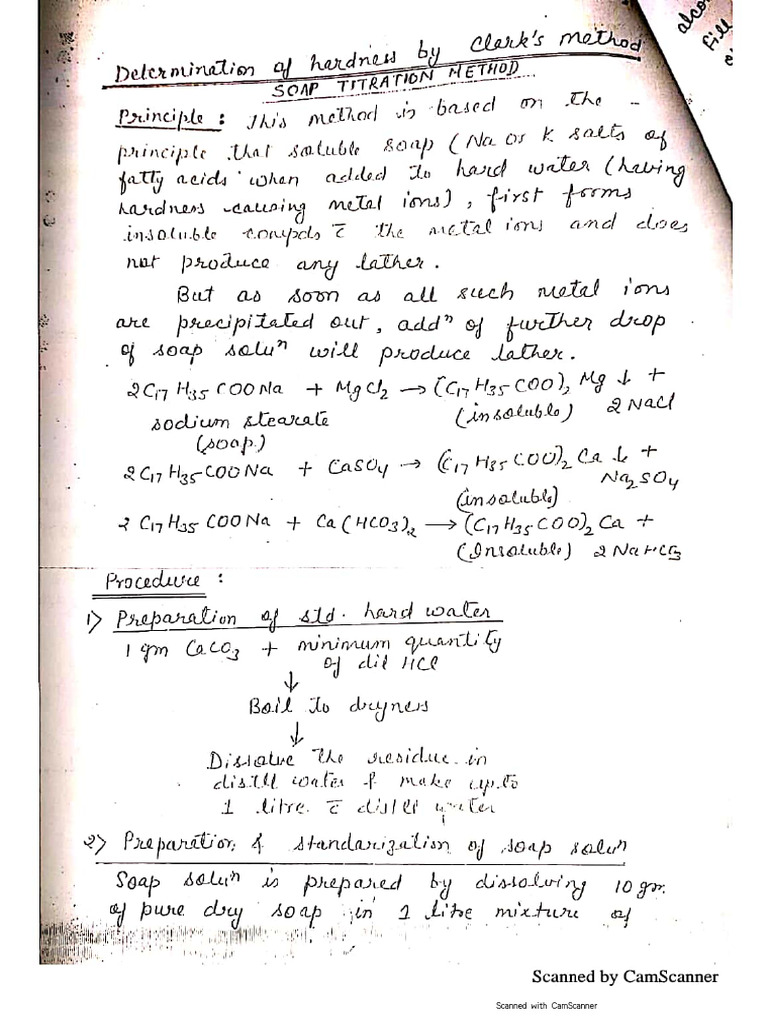 alco
fill
Determination of hardness by Clark's method
SOAP TITRATION METHOD
Principle : This method is based on the -
principle that soluble soap (Na or K salts of
fatty acids when added to hard water (having
hardness causing metal ions), first forms
insoluble compds c̄ the metal ions and does
not produce any lather.
But as soon as all such metal ions
are precipitated out, addⁿ of further drop
of soap soluⁿ will produce lather.
2C₁₇H₃₅COONa + MgCl₂ → (C₁₇H₃₅COO)₂ Mg ↓ +
sodium stearate (insoluble) 2NaCl
(soap)
2C₁₇H₃₅COONa + CaSO₄ → (C₁₇H₃₅COO)₂ Ca ↓ +
(insoluble) Na₂SO₄
2C₁₇H₃₅COONa + Ca(HCO₃)₂ → (C₁₇H₃₅COO)₂ Ca +
(Insoluble) 2NaHCO₃
Procedure :
1) Preparation of std. hard water
1 gm CaCO₃ + minimum quantity
of dil HCl
↓
Boil to dryness
↓
Dissolve the residue in
distill water & make upto
1 litre c̄ distill water
2) Preparation & standarization of soap soluⁿ
Soap soluⁿ is prepared by dissolving 10 gm
of pure dry soap in 1 litre mixture of
Scanned by CamScanner
Scanned with CamScanner